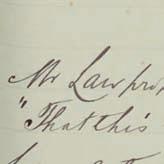 Mr Law prop
"That this